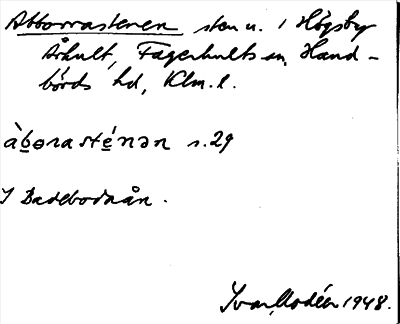 Abborrastenen sten u. i Högsby
Århult, Fagerhults sn, Hand-
börds hd, Klm. l.
àbǝrasténǝn s. 29
I Badebodaån.
Ivar Modéer 1948.